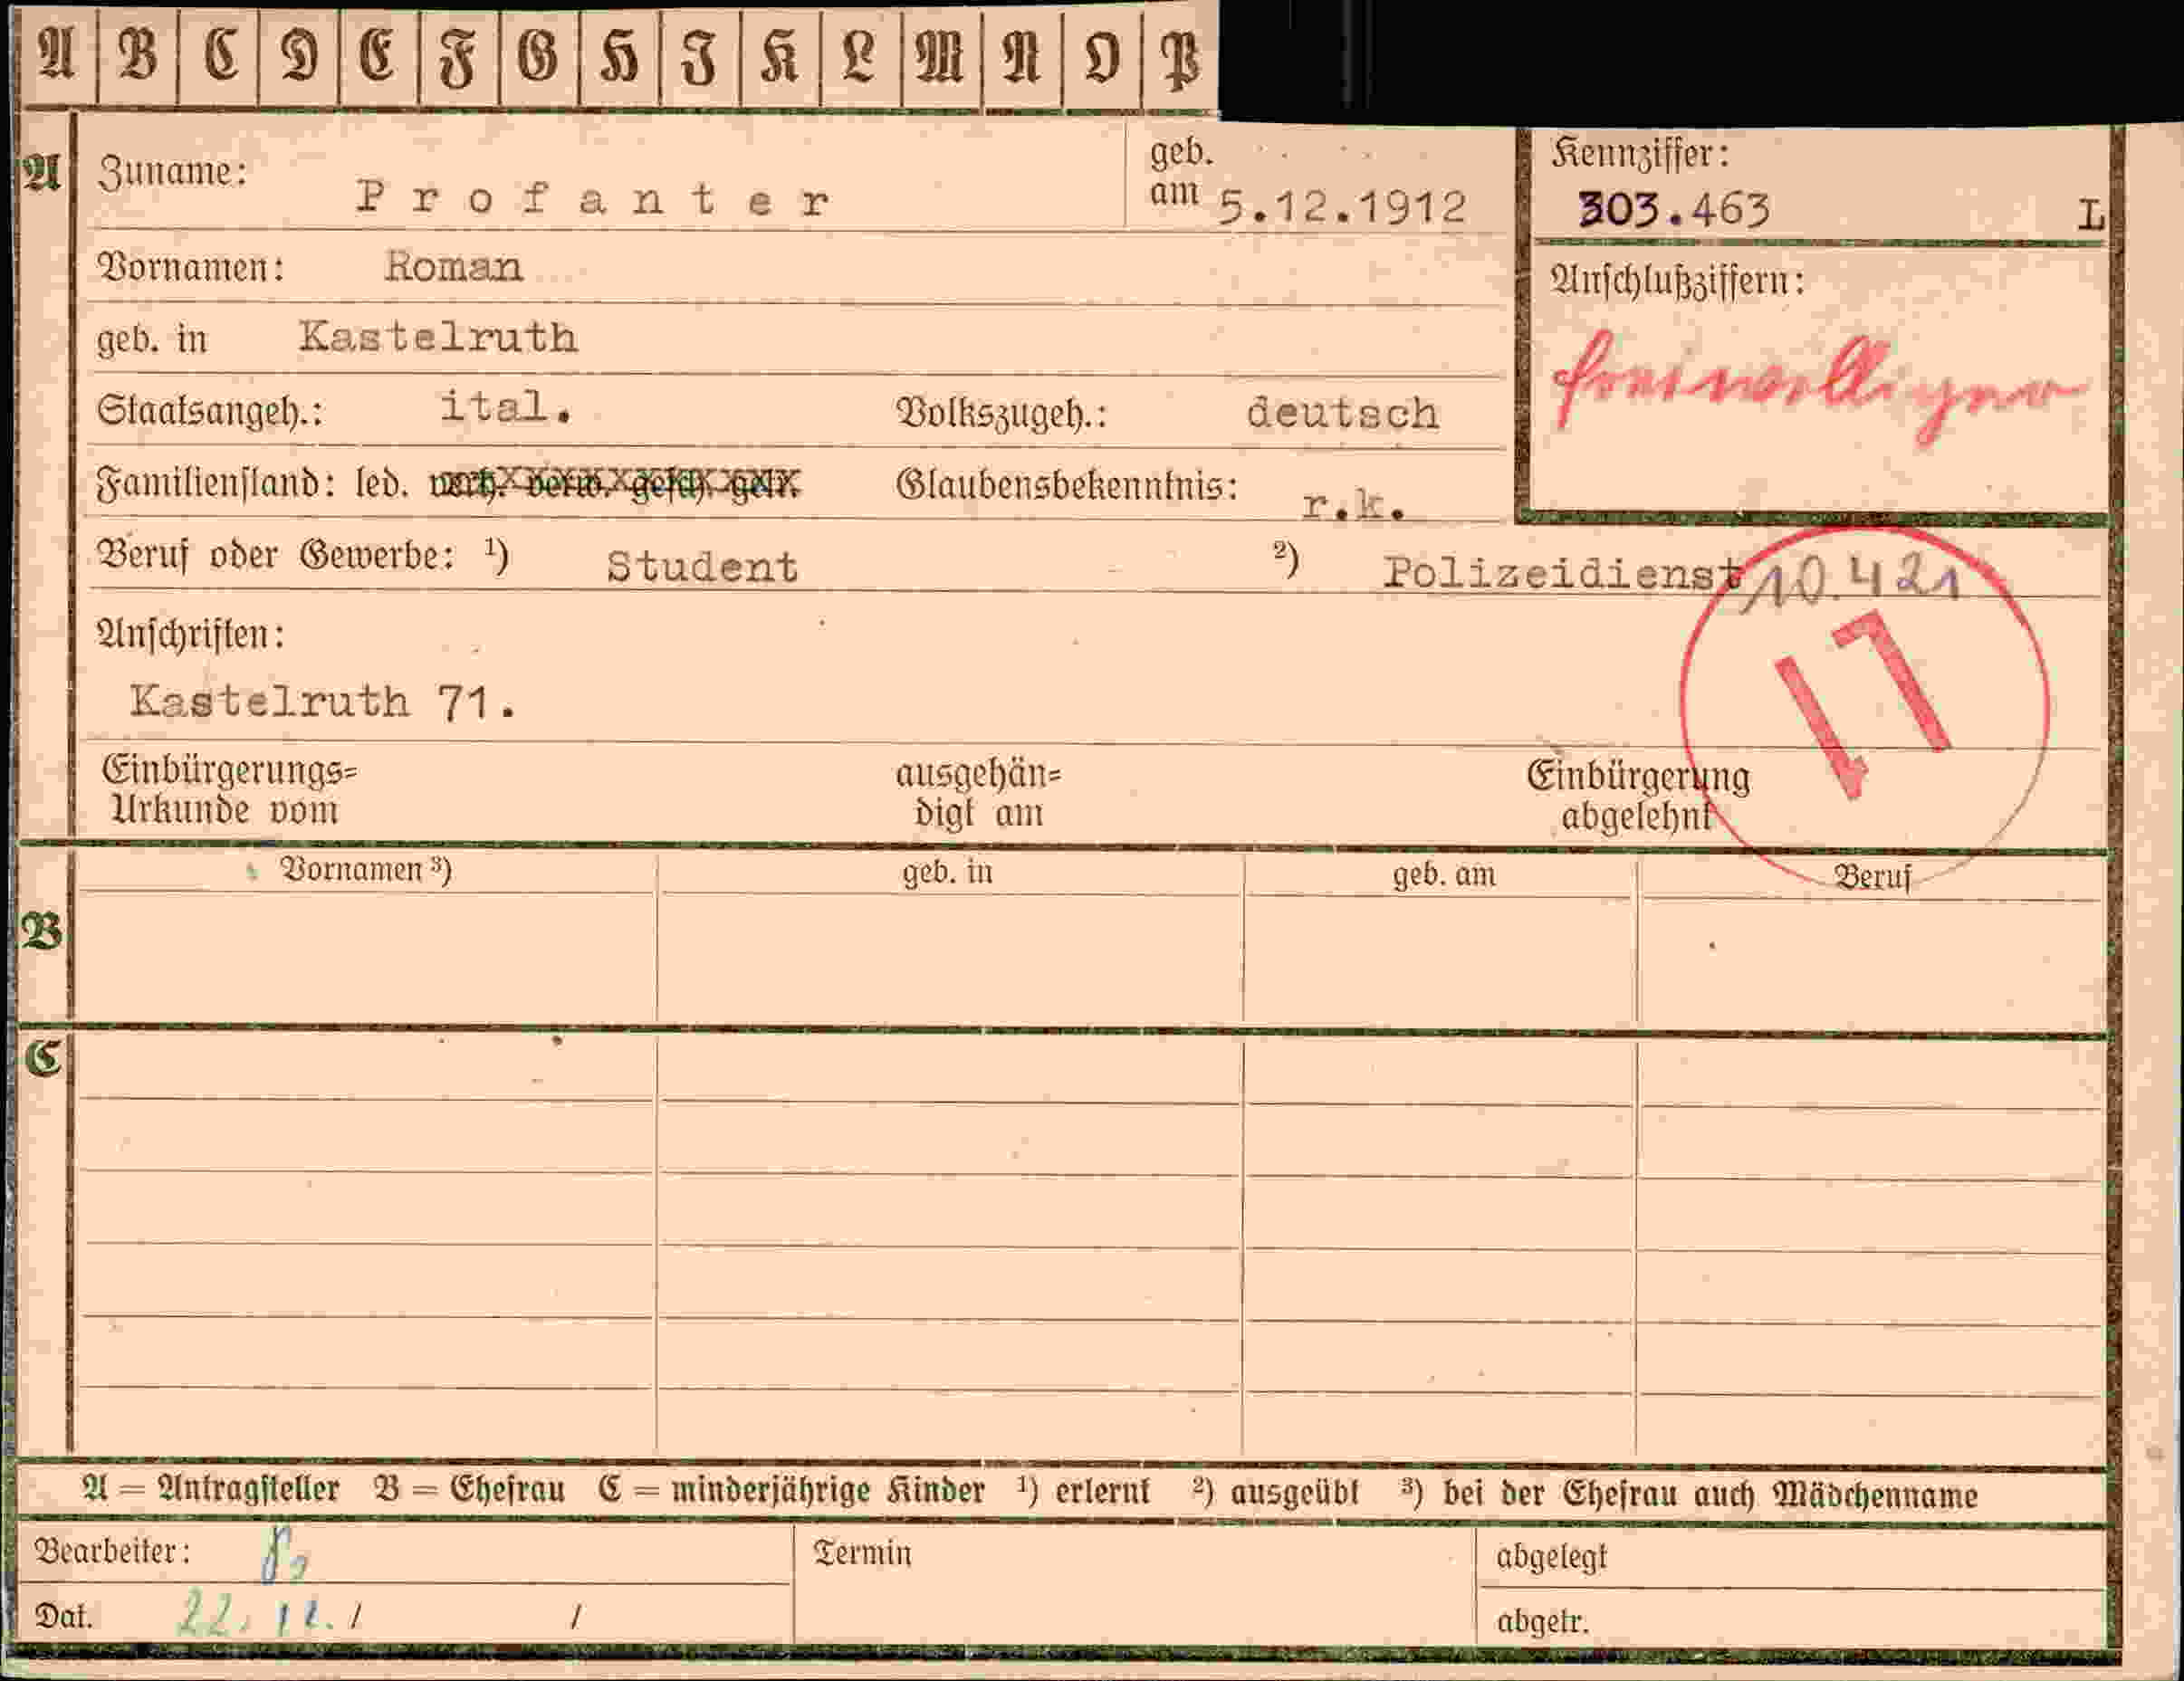 A B C D E F G H I K L M N O P
A Zuname: Profanter geb. am 5.12.1912 Kennziffer: 303.463 L
Vornamen: Roman Anschlußziffern:
geb. in Kastelruth freiwilliger
Staatsangeh.: ital. Volkszugeh.: deutsch
Familienstand: led. verh. verw. gesch. getr. Glaubensbekenntnis: r.k.
Beruf oder Gewerbe: ¹) Student ²) Polizeidienst 10.421
Anschriften:
Kastelruth 71.
17
Einbürgerungs= ausgehän= Einbürgerung
Urkunde vom digt am abgelehnt
Vornamen ³) geb. in geb. am Beruf
B
C
A = Antragsteller B = Ehefrau C = minderjährige Kinder ¹) erlernt ²) ausgeübt ³) bei der Ehefrau auch Mädchenname
Bearbeiter: Termin abgelegt
Dat. 22.12. / / abgetr.